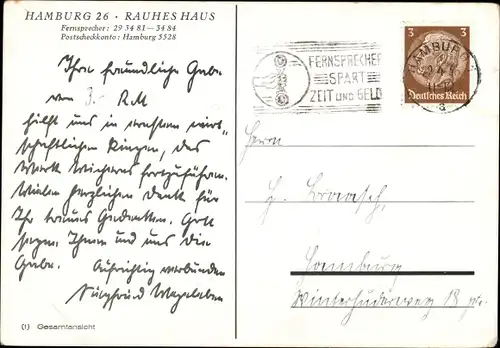 HAMBURG 26 · RAUHES HAUS
Fernsprecher: 29 34 81—34 84
Postscheckkonto: Hamburg 5528
Ihre freundliche Gabe
von 3.- R.M
hilft uns in unserem wirt-
schaftlichen Ringen, das
Werk Wicherns fortzuführen.
Vielen herzlichen Dank für
Ihr treues Gedenken. Gott
segne Ihnen und uns die
Gabe.
Aufrichtig verbunden
(1) Gesamtansicht
FERNSPRECHER
SPART
ZEIT UND GELD
HAMBURG
3 3
Deutsches Reich
Herrn
H. Braasch,
Hamburg
Winterhuderweg 18